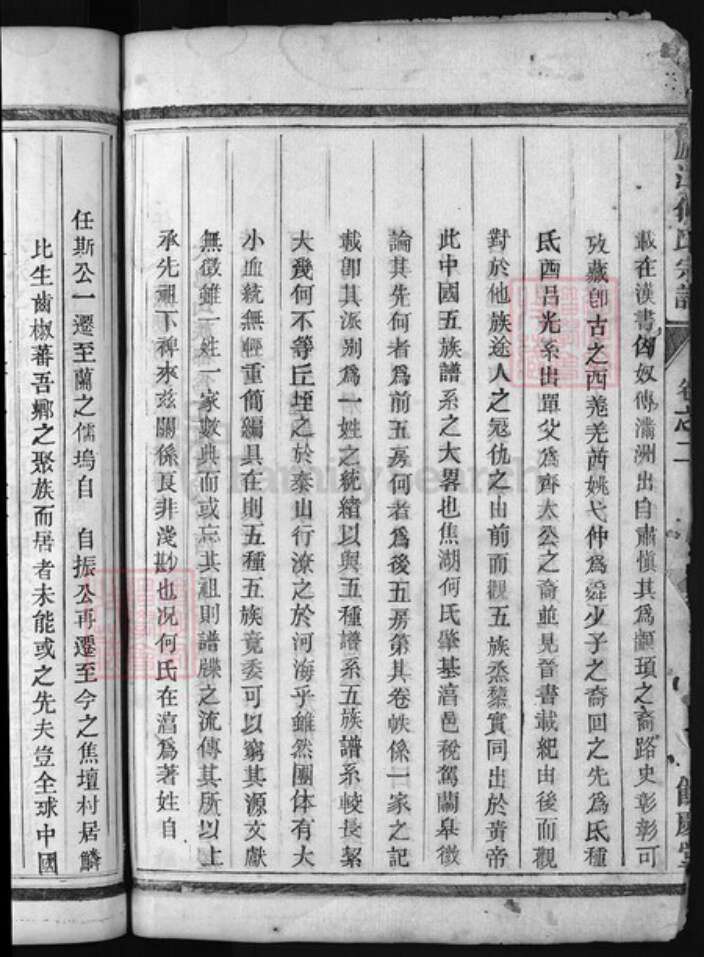 載在漢書匈奴傳滿洲出自肅愼其爲顓頊之裔路史彰彰可
攷藏卽古之西羗羌酋姚弋仲爲舜少子之裔回之先爲氐種
氐酉呂光系出單父爲齊太公之裔並見晉書載紀由後而觀
對於他族途人之冦仇之由前而觀五族烝黎實同出於黃帝
此中國五族譜系之大畧也焦湖何氏肇基湻邑稅駕蘭皋徵
論其先何者爲前五房何者爲後五房第其卷帙係一家之記
載卽其派别爲一姓之統緒以與五種譜系五族譜系較長絜
大幾何不等丘垤之於泰山行潦之於河海乎雖然團体有大
小血統無輕重簡編具在則五種五族竟委可以窮其源文獻
無徵雖一姓一家數典而或忘其祖則譜牒之流傳其所以上
承先祖下裨來兹關係良非淺尠也况何氏在湻爲著姓自
任斯公一遷至蘭之儒塢自 自振公再遷至今之焦壇村居麟
比生齒椒蕃吾鄉之聚族而居者未能或之先夫豈全球中國
何氏宗譜
卷之二
FamilySearch